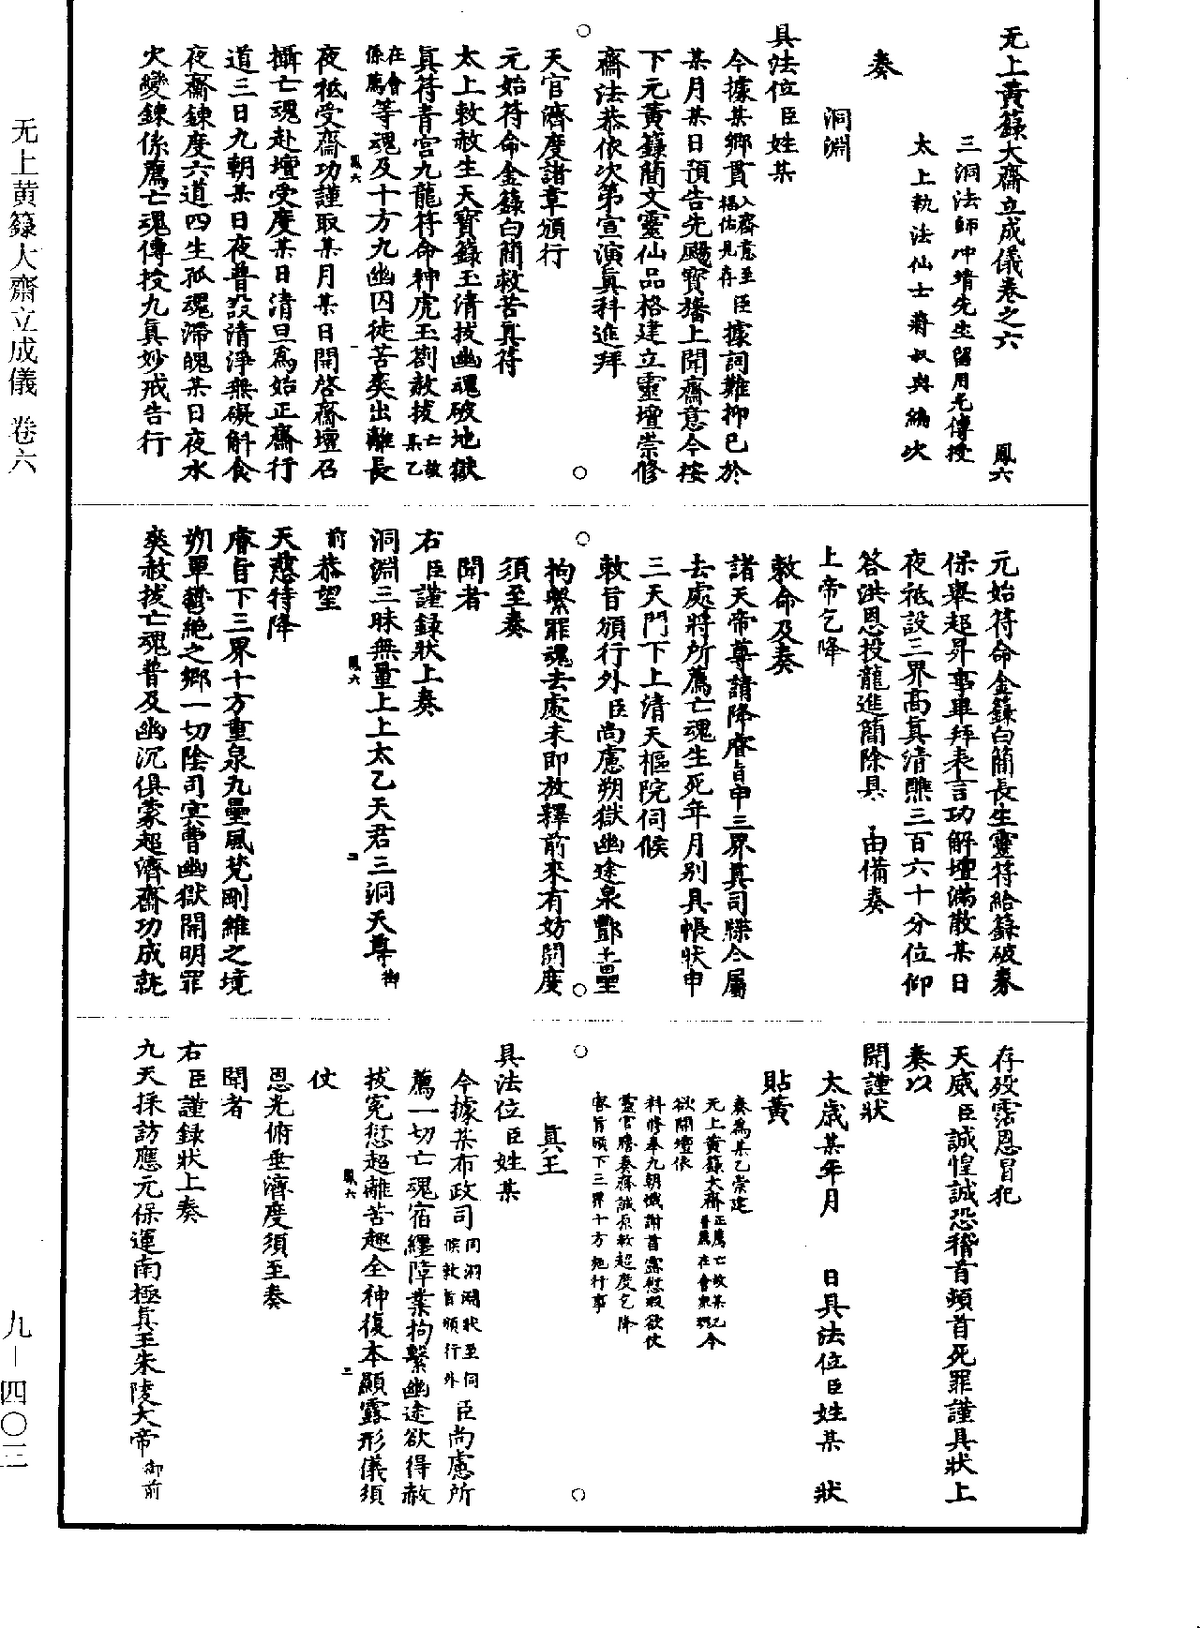 无上黃籙大齋立成儀卷之六　鳳六
三洞法師冲靖先生留用光傳授
太上執法仙士蔣叔輿編次
奏
洞淵
具法位臣姓某
今據某鄉貫入齋意至福佑見存臣據詞難抑已於
某月某日預告先颺寶旛上聞齋意今按
下元黃籙簡文靈仙品格建立靈壇崇修
齋法恭依次第宣演眞科進拜
天官濟度諸章頒行
元始符命金籙白簡救苦眞符
太上敕赦生天寶籙玉清拔幽魂破地獄
眞符青宮九龍符命神虎玉劄敕拔亡故某乙
在會係薦等魂及十方九幽囚徒苦爽出離長
夜祗受齋功謹取某月某日開啓齋壇召
攝亡魂赴壇受度某日清旦爲始正齋行
道三日九朝某日夜普設清淨無礙斛食
夜齋鍊度六道四生孤魂滯魄某日夜水
火變鍊係薦亡魂傳授九眞妙戒告行
元始符命金籙白簡長生靈符給籙破券
保舉超昇事畢拜表言功解壇滿散某日
夜祗設三界高眞清醮三百六十分位仰
答洪恩投龍進簡除具　由備奏
上帝乞降
敕命及奏
諸天帝尊請降睿旨申三界眞司牒合屬
去處將所薦亡魂生死年月別具帳狀申
三天門下上清天樞院伺候
敕旨頒行外臣尚慮朔獄幽途泉酆土壘
拘繫罪魂去處未即放釋前來有妨開度
須至奏
聞者
右臣謹錄狀上奏
洞淵三昧無量上上太乙天君三洞天尊御
前恭望
天慈特降
睿旨下三界十方重泉九壘風梵剛維之境
朔單鬱絕之鄉一切陰司冥曹幽獄開明罪
爽赦拔亡魂普及幽沉俱蒙超濟齋功成就
存歿霑恩冒犯
天威臣誠惶誠恐稽首頓首死罪謹具狀上
奏以
聞謹狀
太歲某年月　日具法位臣姓某　狀
貼黃
奏爲某乙崇建
无上黃籙大齋正薦亡故某乙普薦在會衆魂今
欲開壇依
科修奉九朝懺謝首露愆瑕欲仗
靈官騰奏齋誠原赦超度乞降
睿旨頒下三界十方施行事
眞王
具法位臣姓某
今據某布政司同洞淵狀至伺候敕旨頒行外臣尚慮所
薦一切亡魂宿纏障業拘繫幽途欲得赦
拔冤愆超離苦趣全神復本顯露形儀須
仗
恩光俯垂濟度須至奏
聞者
右臣謹錄狀上奏
九天採訪應元保運南極眞王朱陵大帝御前
鳳六
一
鳳六
二
鳳六
三
无上黄籙大齋立成儀　卷六
九—四〇三